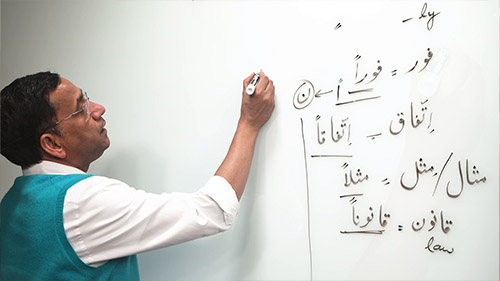 " – ly
فور = فوراً
ن ← اً
اِتّفاق – اِتّفاقاً
مثال/مِثل = مثلاً
قانون = قانوناً
law